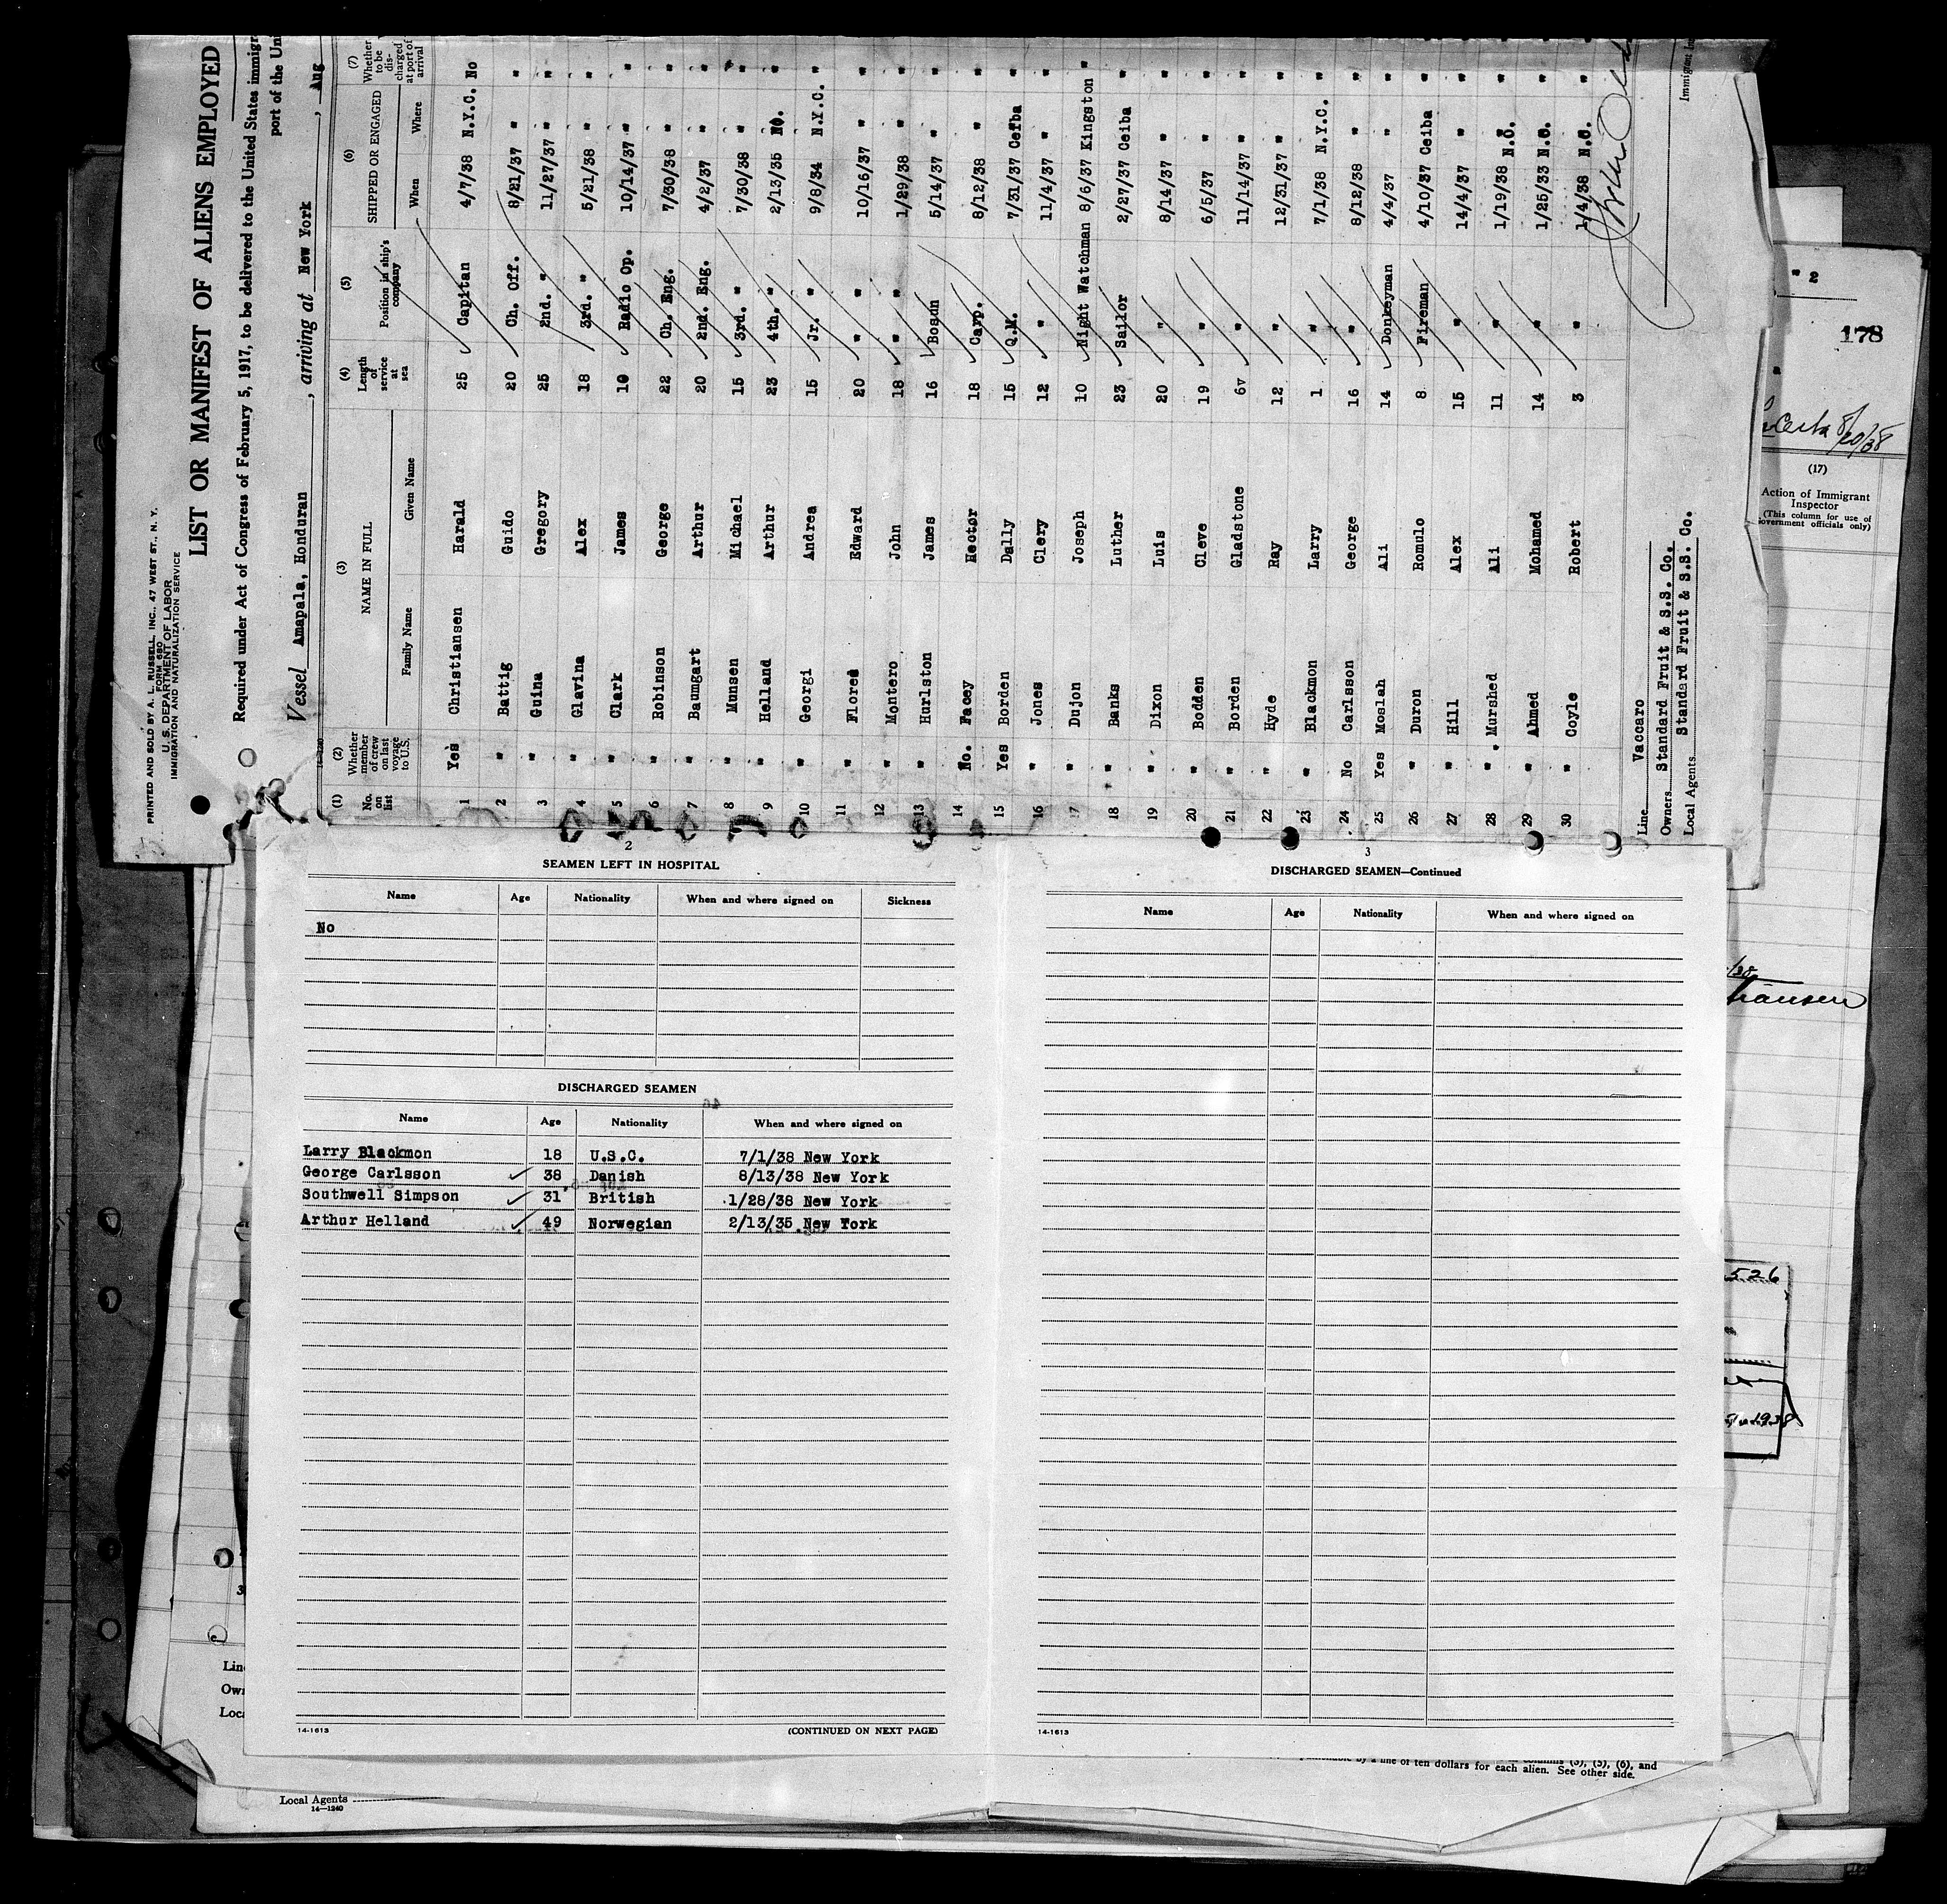 PRINTED AND SOLD BY A. L. RUSSELL, INC., 47 WEST ST., N. Y.
FORM 680
U. S. DEPARTMENT OF LABOR
IMMIGRATION AND NATURALIZATION SERVICE
LIST OR MANIFEST OF ALIENS EMPLOYED
Required under Act of Congress of February 5, 1917, to be delivered to the United States immigr
port of the Uni
Vessel Amapala, Honduran, arriving at New York, Aug
(1) No. on list (2) Whether member of crew on last voyage to U.S. (3) NAME IN FULL Family Name Given Name (4) Length of service at sea (5) Position in ship's company (6) SHIPPED OR ENGAGED When Where (7) Whether to be discharged at port of arrival
1 Yes Christiansen Harald 25 Capitan 4/7/38 N.Y.C. No
2 " Battig Guido 20 Ch. Off. 8/21/37 " "
3 " Guina Gregory 25 2nd. " 11/27/37 " "
4 " Glavina Alex 18 3rd. " 5/21/38 " "
5 " Clark James 10 Radio Op. 10/14/37 " "
6 " Robinson George 22 Ch. Eng. 7/30/38 " "
7 " Baumgart Arthur 20 2nd. Eng. 4/2/37 " "
8 " Munsen Michael 15 3rd. " 7/30/38 " "
9 " Helland Arthur 23 4th. " 2/13/35 NO. "
10 " Georgi Andrea 15 Jr. " 9/8/34 N.Y.C. "
11 " Flores Edward 20 " " 10/16/37 " "
12 " Montero John 18 " " 1/29/38 " "
13 " Hurlston James 16 Bosun 5/14/37 " "
14 No. Facey Hector 18 Carp. 8/12/38 " "
15 Yes Borden Dally 15 Q.M. 7/31/37 Ceiba "
16 " Jones Clery 12 " 11/4/37 " "
17 " Dujon Joseph 10 Night Watchman 8/6/37 Kingston "
18 " Banks Luther 23 Sailor 2/27/37 Ceiba "
19 " Dixon Luis 20 " 8/14/37 " "
20 " Bodden Cleve 19 " 6/5/37 " "
21 " Borden Gladstone 6v " 11/14/37 " "
22 " Hyde Ray 12 " 12/31/37 " "
23 " Blackmon Larry 1 " 7/1/38 N.Y.C. "
24 No Carlsson George 16 " 8/12/38 " "
25 Yes Moslah Ali 14 Donkeyman 4/4/37 " "
26 " Duron Romulo 8 Fireman 4/10/37 Ceiba "
27 " Hill Alex 15 " 14/4/37 " "
28 " Murshed Ali 11 " 1/19/38 N.O. "
29 " Ahmed Mohamed 14 " 1/25/33 N.O. "
30 " Coyle Robert 3 " 1/4/38 N.O. "
Line Vaccaro
Owners Standard Fruit & S.S. Co.
Local Agents Standard Fruit & S.S. Co.
Immigrant
" 2
178
8/20/38
(17)
Action of Immigrant
Inspector
(This column for use of
overnment officials only)
/38
tiansen
526
1938
2
SEAMEN LEFT IN HOSPITAL
Name Age Nationality When and where signed on Sickness
No
DISCHARGED SEAMEN
Name Age Nationality When and where signed on
Larry Blackmon 18 U.S.C. 7/1/38 New York
George Carlsson 38 Danish 8/13/38 New York
Southwell Simpson 31 British 1/28/38 New York
Arthur Helland 49 Norwegian 2/13/35 New York
14-1613 (CONTINUED ON NEXT PAGE)
3
DISCHARGED SEAMEN—Continued
Name Age Nationality When and where signed on
14-1613
Lin
Own
Loca
(3), (5), (6), and
by a fine of ten dollars for each alien. See other side.
Local Agents
14—1240